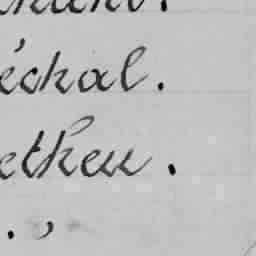 échal.
etheu.
.,